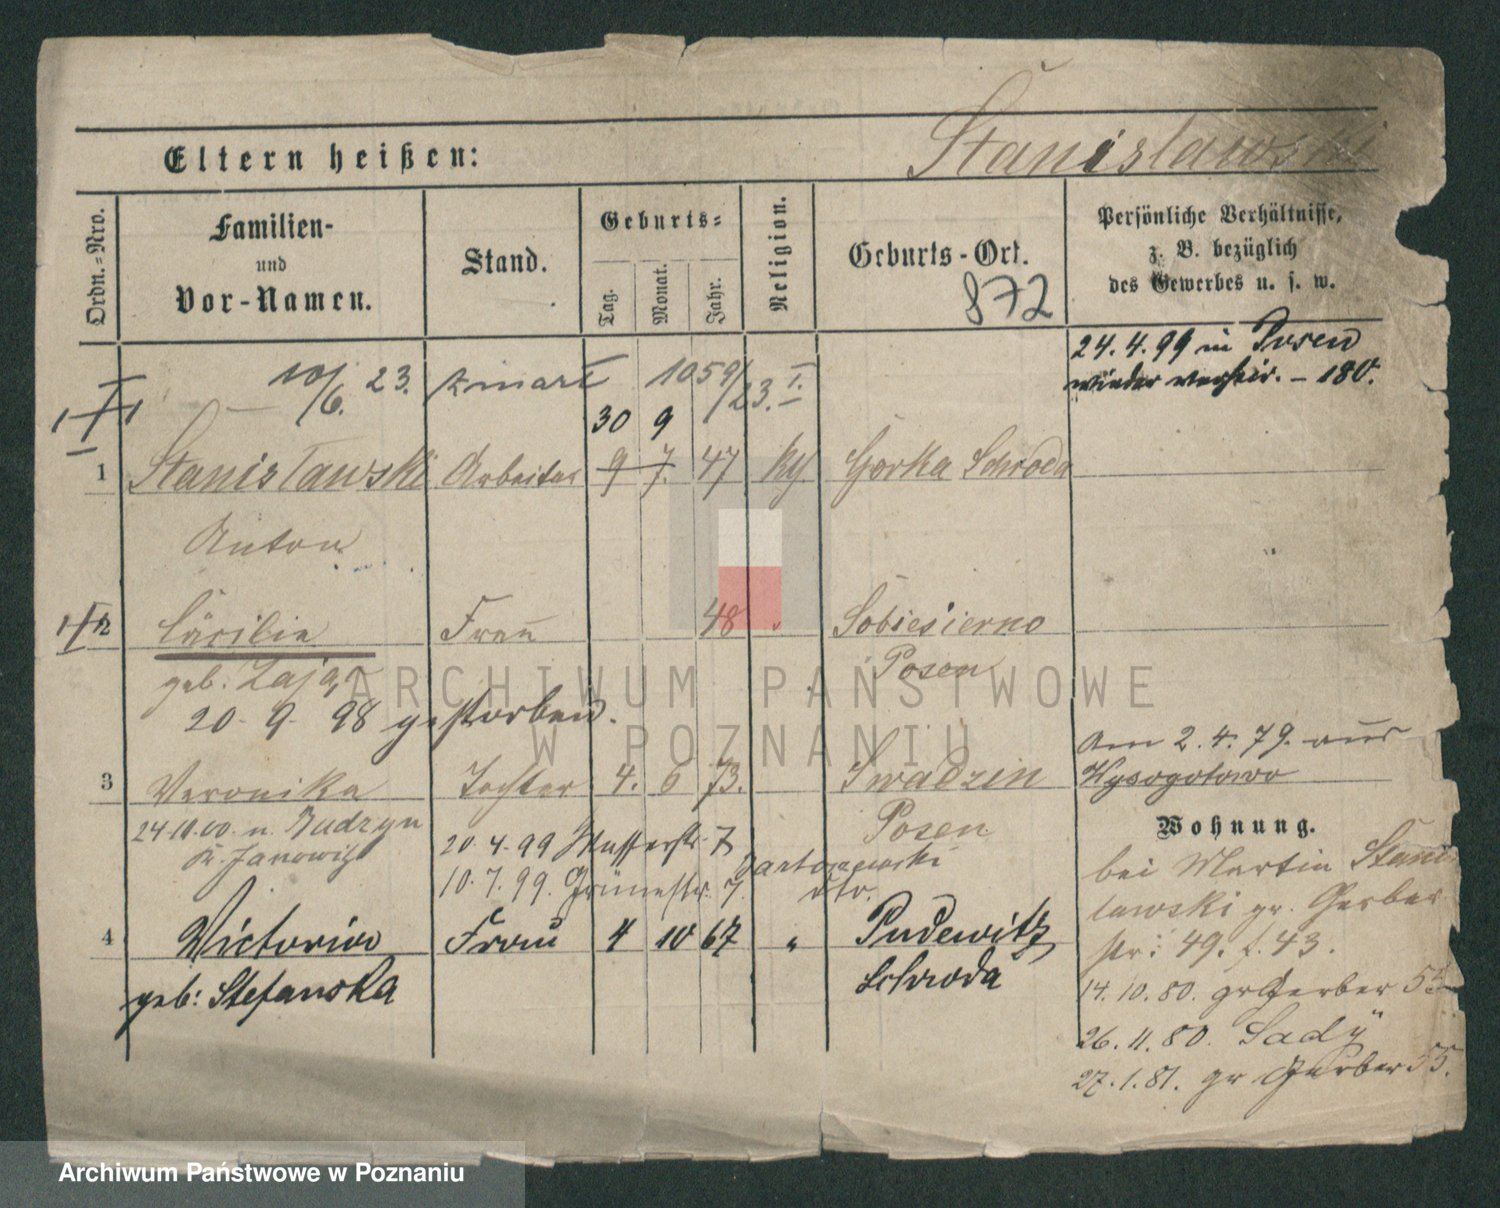 Stanisławski
Eltern heißen:
Ordn.-Nro.
Familien-
und
Vor-Namen.
Stand.
Geburts-
Tag.
Monat.
Jahr.
Religion.
Geburts-Ort.
872
Persönliche Verhältnisse,
z. B. bezüglich
des Gewerbes u. s. w.
24.4.99 in Posen
wieder verheir. – 180.
10/6. 23. zmarł 1059/23. I.
30 9
1 Stanisławski Arbeiter 9 7. 47 kg. Gorka Schroda
Anton
2 Cäcilia Frau 48 " Sobiesierno
geb. Zając Posen
20-9-98 gestorben.
Am 2.4.79. aus
3 Veronika Tochter 4. 6 73. Swadzin Wysogotowo
24.10.00. n. Budzyn Posen
Kr. Janowitz
20.4.99 Wasserstr. 7
10.7.99. Grünestr. 7. Bartoszewski
Wohnung.
bei Martin Stani
lawski gr. Gerber
str: 49. f. 43.
4 Victoria Frau 4 10 67 " Pudewitz
geb: Stefanska Schroda
14.10.80. gr Gerber 55
26.11.80. Sady
27.1.81. gr Gerber 55.
ARCHIWUM PAŃSTWOWE
W POZNANIU
Archiwum Państwowe w Poznaniu